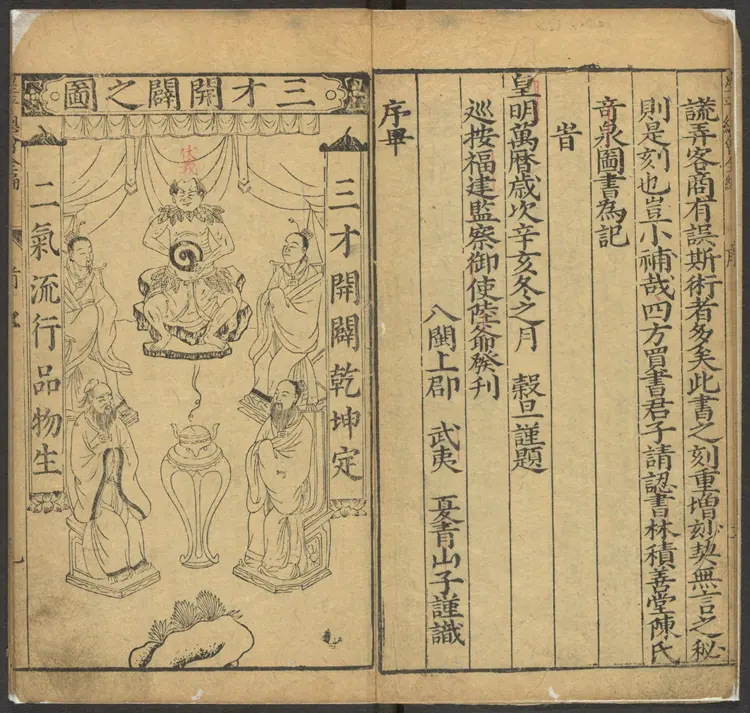 謊弄客商有誤斯術者多矣此書之刻重增玅契無言之秘
則是刻也豈小補哉四方買書君子請認書林積善堂陳氏
竒泉圖書為記
皇明萬曆歲次辛亥冬之月 穀旦謹題
巡按福建監察御使陸爺發刋
八閩上郡 武夷 夏青山子謹識
序畢
三才開闢之圖
三才開闢乾坤定
二氣流行品物生